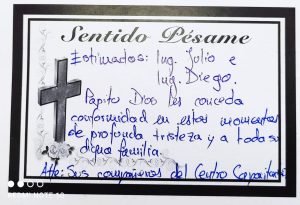 Sentido Pésame
Estimados: Ing. Julio e
Ing. Diego.
Papito Dios les conceda
conformidad en estos momentos
de profunda tristeza y a toda su
digna familia.
Atte: Sus compañeros del Centro